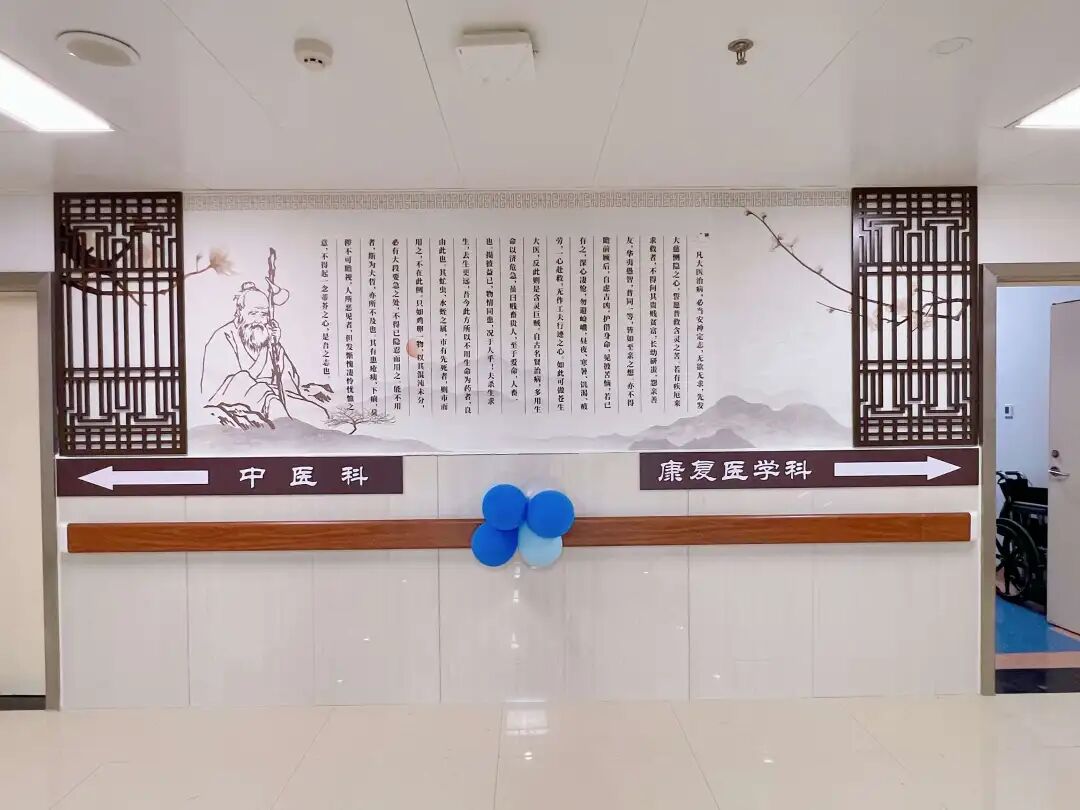 凡大医治病，必当安神定志，无欲无求，先发
大慈恻隐之心，誓愿普救含灵之苦。若有疾厄来
求救者，不得问其贵贱贫富，长幼妍蚩，怨亲善
友，华夷愚智，普同一等，皆如至亲之想。亦不得
瞻前顾后，自虑吉凶，护惜身命。见彼苦恼，若己
有之，深心凄怆，勿避崄巇、昼夜、寒暑、饥渴、疲
劳，一心赴救，无作工夫行迹之心。如此可做苍生
大医，反此则是含灵巨贼。自古名贤治病，多用生
命以济危急，虽曰贱畜贵人，至于爱命，人畜一
也。损彼益己，物情同患，况于人乎！夫杀生求
生，去生更远。吾今此方所以不用生命为药者，良
由此也。其虻虫、水蛭之属，市有先死者，则市而
用之，不在此例。只如鸡卵一物，以其混沌未分，
必有大段要急之处，不得已隐忍而用之。能不用
者，斯为大哲，亦所不及也。其有患疮痍、下痢，臭
秽不可瞻视，人所恶见者，但发惭愧凄怜忧恤之
意，不得起一念蒂芥之心，是吾之志也。
中医科
康复医学科